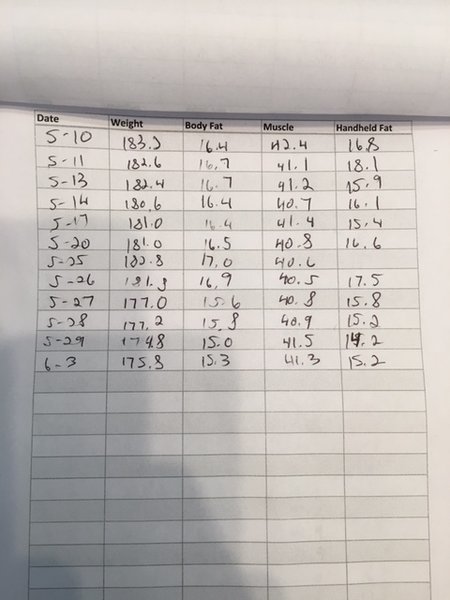 Date Weight Body Fat Muscle Handheld Fat
5-10 183.2 16.4 42.4 16.8
5-11 182.6 16.7 41.1 18.1
5-13 182.4 16.7 41.2 15.9
5-14 180.6 16.4 40.7 16.1
5-17 181.0 16.4 41.4 15.4
5-20 181.0 16.5 40.8 16.6
5-25 182.8 17.0 40.6
5-26 16.9 40.5 17.5
5-27 177.0 15.6 40.8 15.8
5-28 177.2 40.9 15.2
5-29 174.8 15.0 41.5 14.2
6-3 175.8 15.3 41.3 15.2